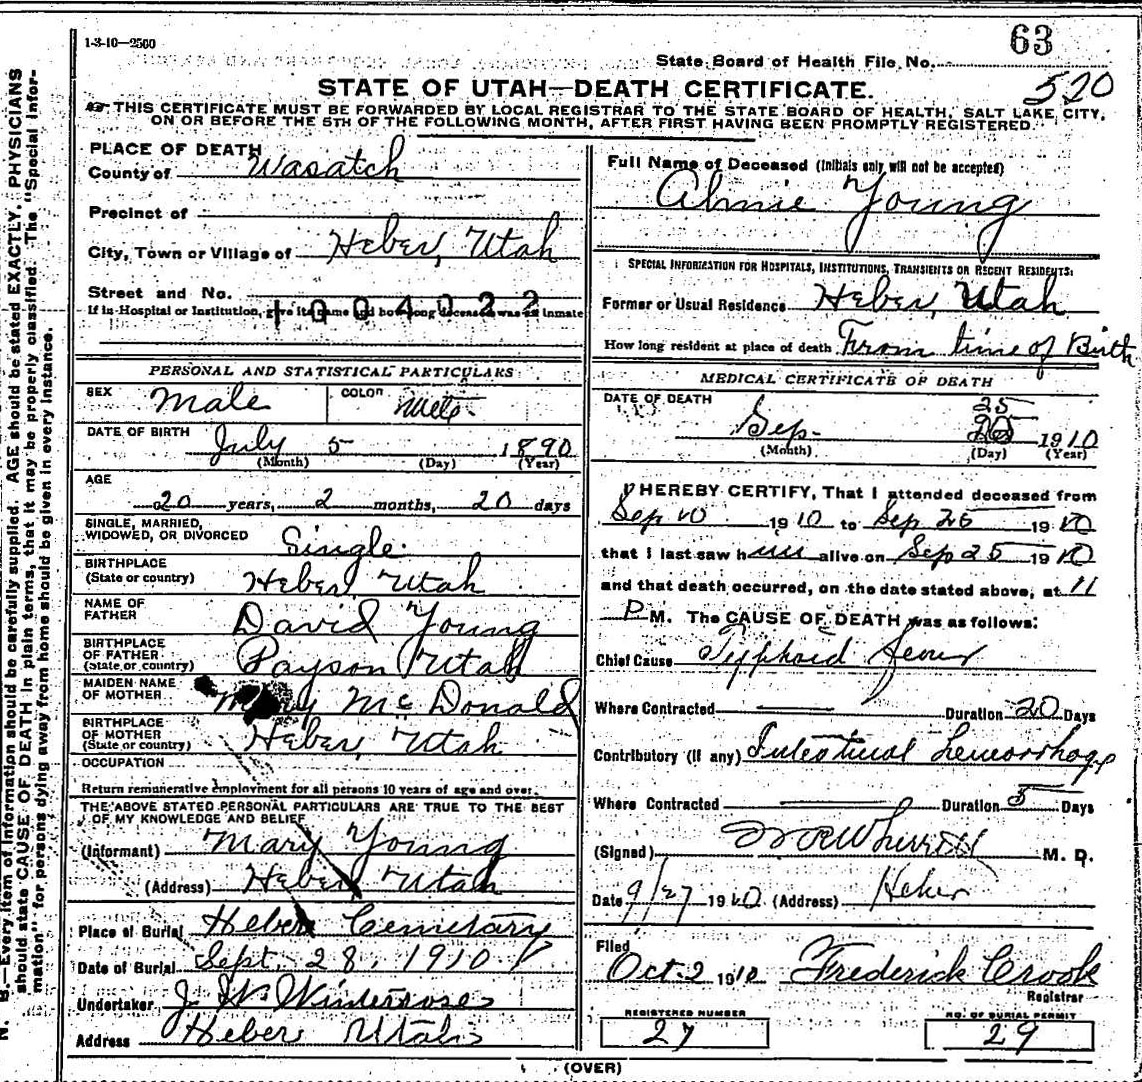 1-3-10—2500
63
State Board of Health File No.
520
STATE OF UTAH—DEATH CERTIFICATE.
THIS CERTIFICATE MUST BE FORWARDED BY LOCAL REGISTRAR TO THE STATE BOARD OF HEALTH, SALT LAKE CITY,
ON OR BEFORE THE 5TH OF THE FOLLOWING MONTH, AFTER FIRST HAVING BEEN PROMPTLY REGISTERED.
PLACE OF DEATH
County of Wasatch
Precinct of
City, Town or Village of Heber, Utah
Street and No.
1004022
If in Hospital or Institution, give its name and how long deceased was an inmate
PERSONAL AND STATISTICAL PARTICULARS
SEX Male COLOR
DATE OF BIRTH July 5 1890
(Month) (Day) (Year)
AGE
20 years, 2 months, 20 days
SINGLE, MARRIED,
WIDOWED, OR DIVORCED Single
BIRTHPLACE
(State or country) Heber, Utah
NAME OF
FATHER David Young
BIRTHPLACE
OF FATHER
(State or country) Payson Utah
MAIDEN NAME
OF MOTHER Mary McDonald
BIRTHPLACE
OF MOTHER
(State or country) Heber, Utah
OCCUPATION
Return remunerative employment for all persons 10 years of age and over.
THE ABOVE STATED PERSONAL PARTICULARS ARE TRUE TO THE BEST
OF MY KNOWLEDGE AND BELIEF
(Informant) Mary Young
(Address) Heber Utah
Place of Burial Heber Cemetary
Date of Burial Sept. 28, 1910
Undertaker J. W. Winterrose
Address Heber Utah
Full Name of Deceased (Initials only will not be accepted)
Young
SPECIAL INFORMATION FOR HOSPITALS, INSTITUTIONS, TRANSIENTS OR RECENT RESIDENTS:
Former or Usual Residence Heber, Utah
How long resident at place of death From time of Birth
MEDICAL CERTIFICATE OF DEATH
DATE OF DEATH
25
Sep. 1910
(Month) (Day) (Year)
I HEREBY CERTIFY, That I attended deceased from
Sep 10 1910 to Sep 25 1910
that I last saw him alive on Sep 25 1910
and that death occurred, on the date stated above, at 11
P M. The CAUSE OF DEATH was as follows:
Chief Cause Typhoid fever
Where Contracted Duration 20 Days
Contributory (if any) Intestinal hemorrhage
Where Contracted Duration 5 Days
(Signed) M. D.
Date 9/27 1910 (Address) Heber
Filed
Oct. 2 1910 Frederick Crook
Registrar
REGISTERED NUMBER
27
NO. OF BURIAL PERMIT
29
(OVER)
N. B.—Every item of information should be carefully supplied. AGE should be stated EXACTLY. PHYSICIANS
should state CAUSE OF DEATH in plain terms, that it may be properly classified. The "Special Infor-
mation" for persons dying away from home should be given in every instance.